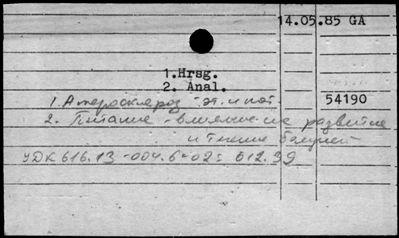 14.05.85 GA
1.Hrsg.
2. Anal.
1. Атеросклероз - эт. и пат.
54190
2. Питание - влияние на развитие
и течение болезней
УДК 616.13-004.6-02: 612.39